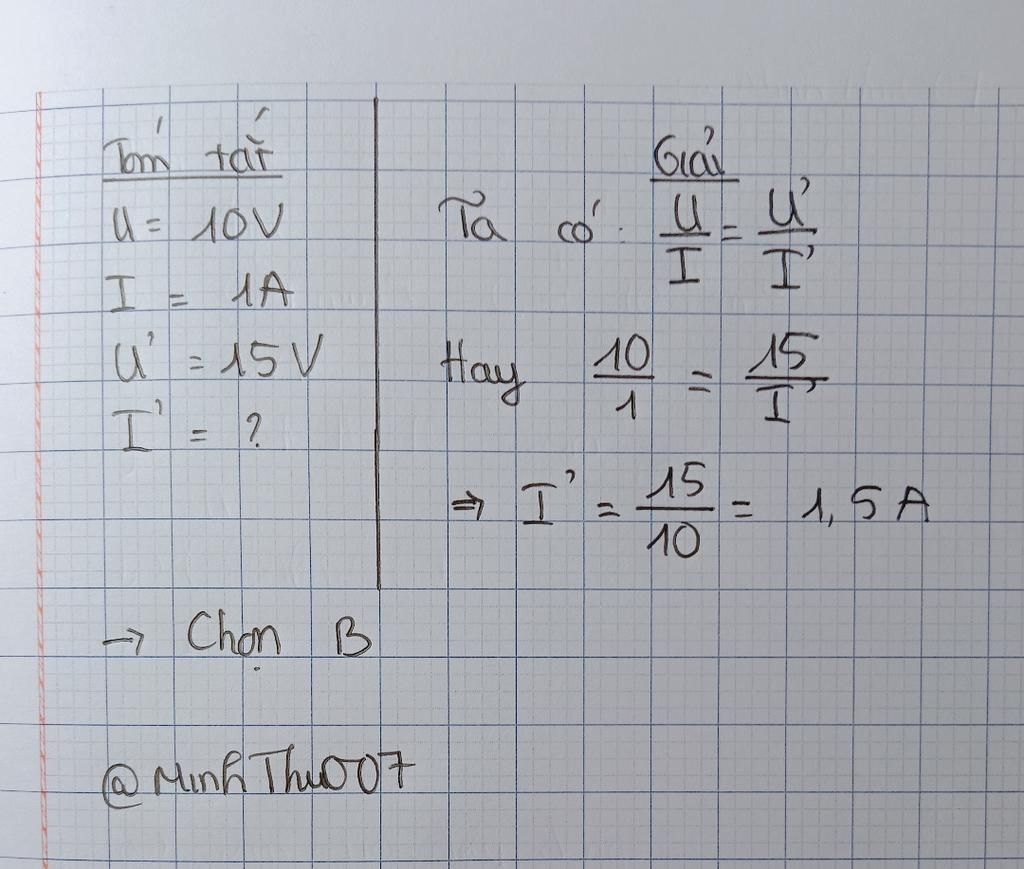 Tóm tắt
U = 10V
I = 1A
U' = 15V
I' = ?
Giải
Ta có: U/I = U'/I'
Hay 10/1 = 15/I'
⇒ I' = 15/10 = 1,5A
→ Chọn B
@MinhThu007